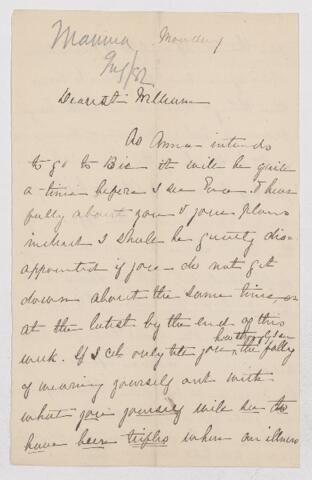 Mamma Monday
Aug/82
Dearest William
As Anna intends
to go to Bic it will be quite
a time before I see Eva & hear
fully about you & your plans
indeed I shall be greatly dis=
appointed if you do not get
down about the same time, or
at the latest by the end of this
week. If I could only tell you, the folly
of wearing yourself out with
what you yourself will see to
have been trifles when an illness